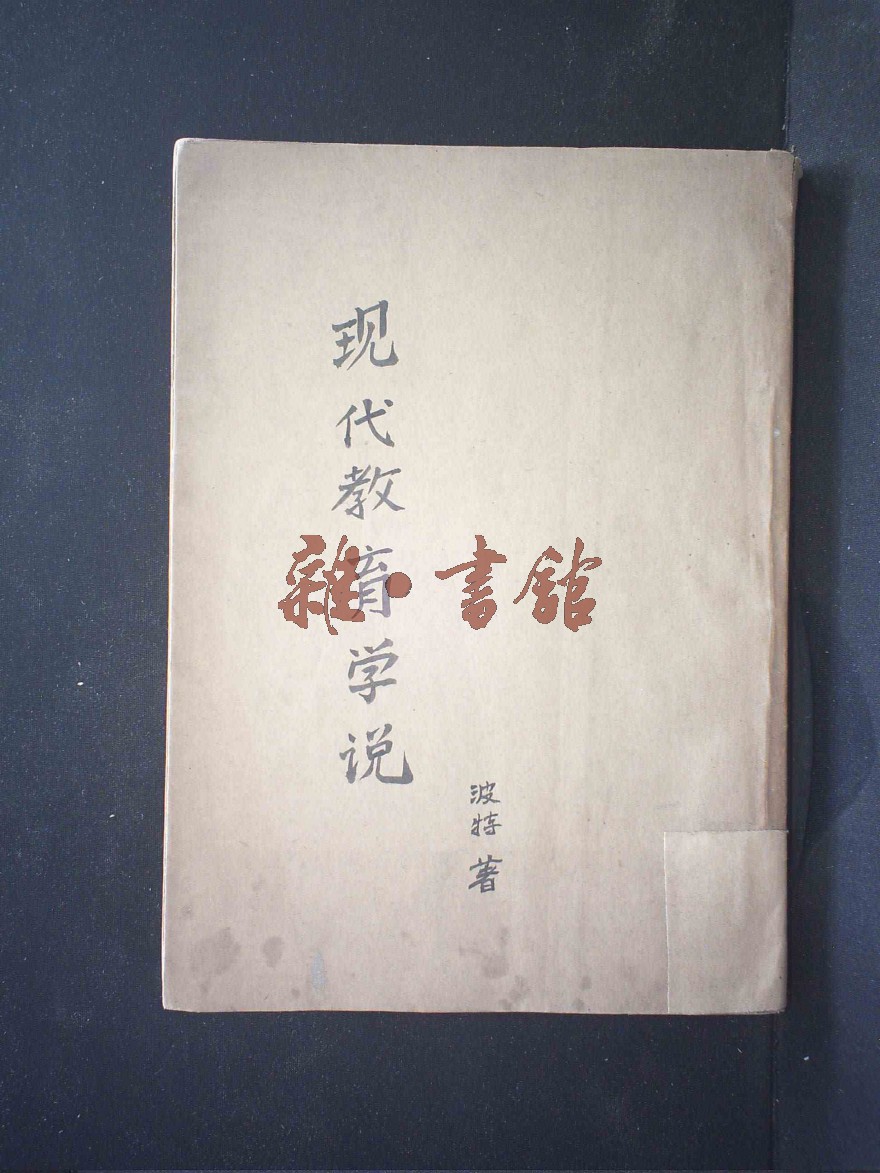 现代教育学说
波特 著
雜·書館